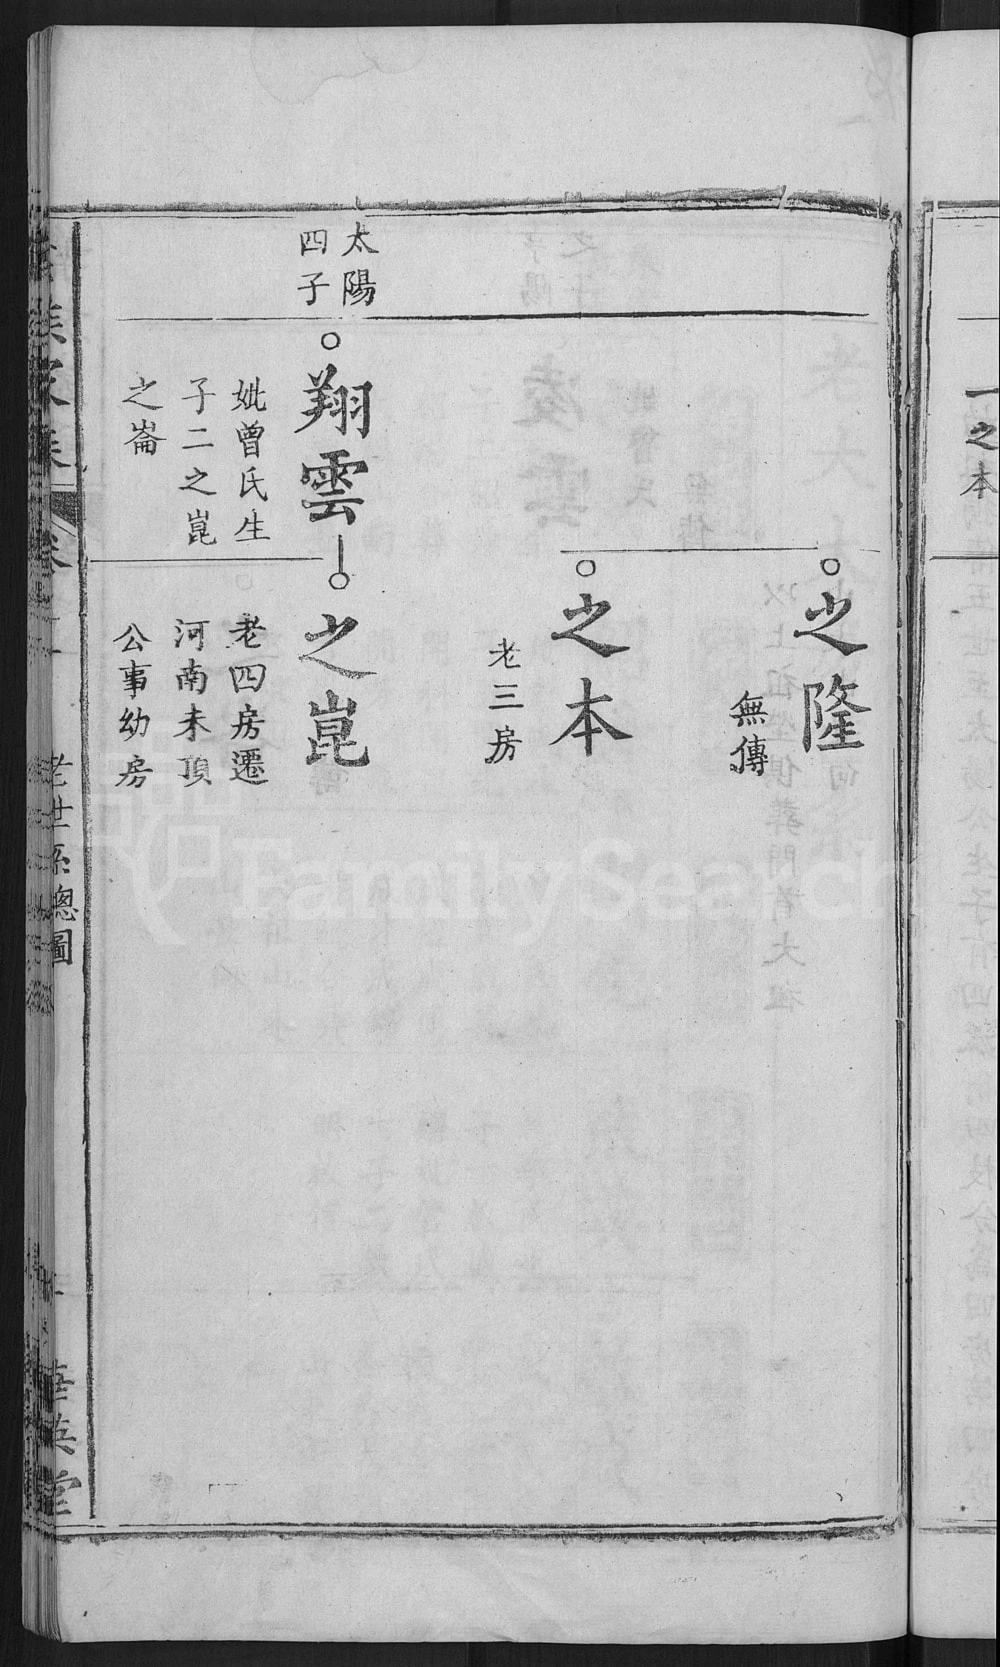 一之本
之隆
無傳
之本
老三房
太陽
四子
翔雲
妣曾氏生
子二之崑
之崙
之崑
老四房遷
河南未頂
公事幼房
老世系總圖
華英堂
FamilySearch